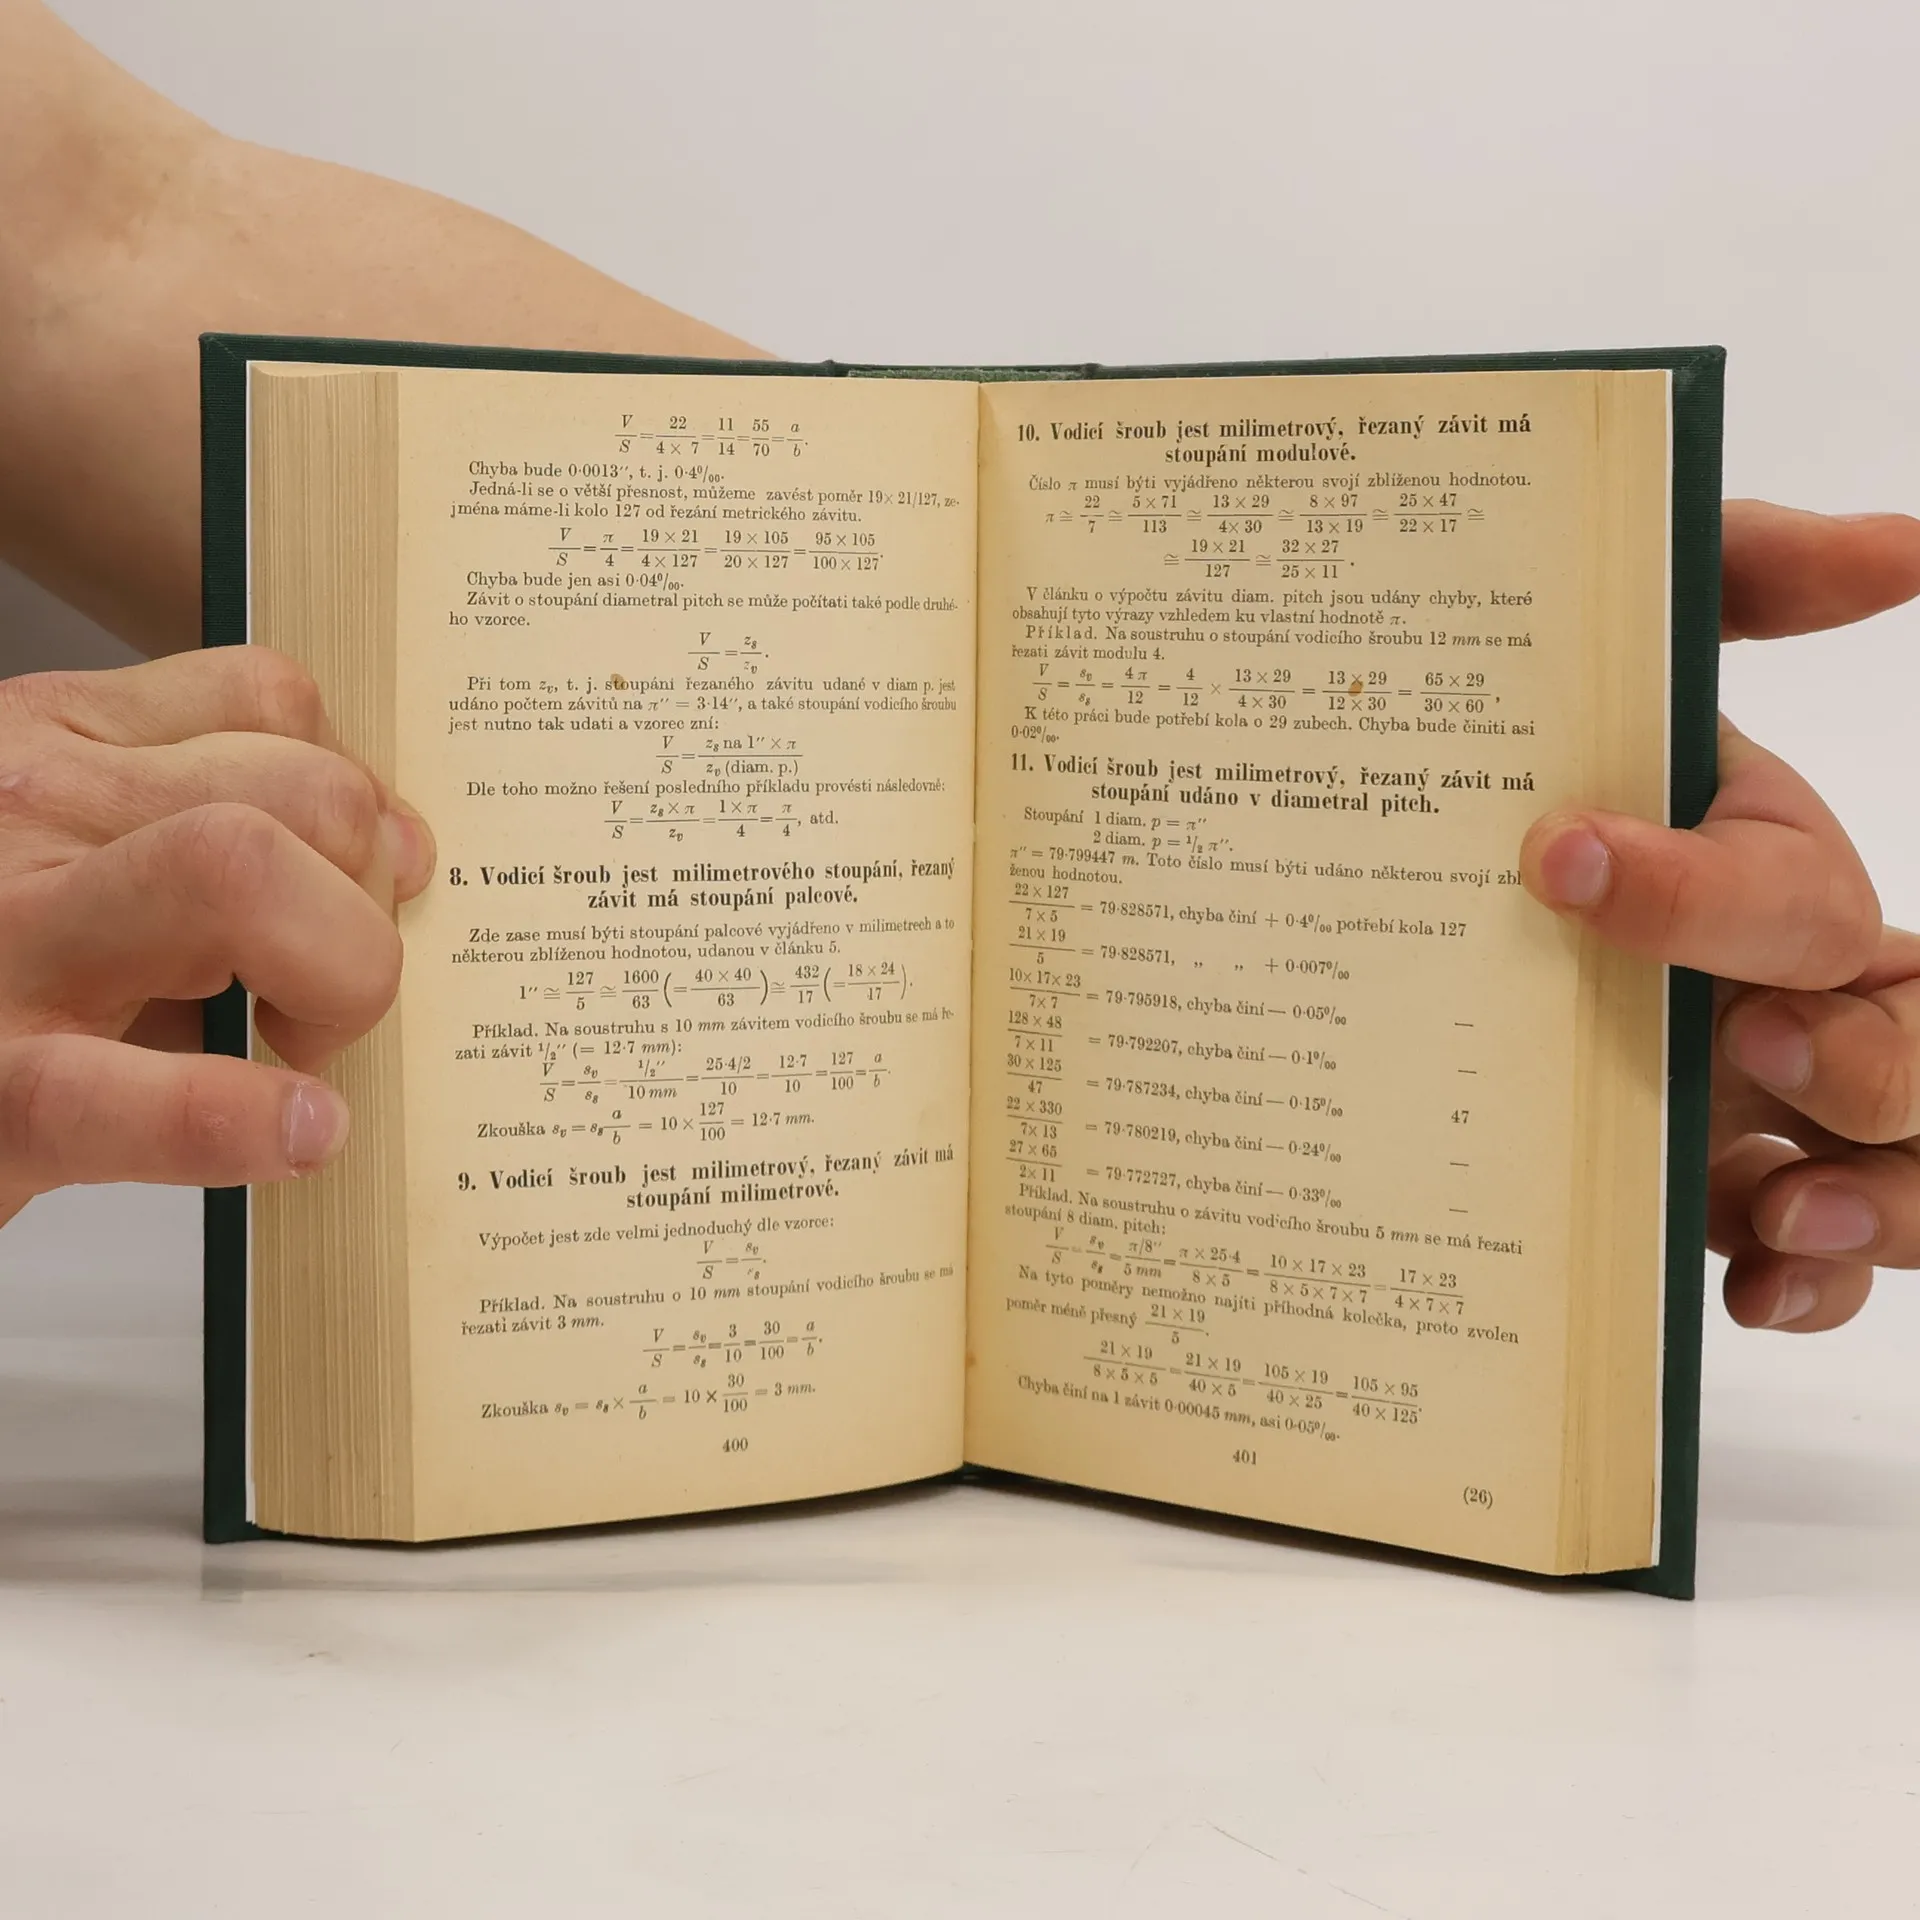 V/S = 22/(4 × 7) = 11/14 = 55/70 = a/b.
Chyba bude 0·0013″, t. j. 0·4⁰/₀₀.
Jedná-li se o větší přesnost, můžeme zavést poměr 19× 21/127, ze-
jména máme-li kolo 127 od řezání metrického závitu.
V/S = π/4 = (19 × 21)/(4 × 127) = (19 × 105)/(20 × 127) = (95 × 105)/(100 × 127).
Chyba bude jen asi 0·04⁰/₀₀.
Závit o stoupání diametral pitch se může počítati také podle druhé-
ho vzorce.
V/S = z_s/z_v.
Při tom z_v, t. j. stoupání řezaného závitu udané v diam p. jest
udáno počtem závitů na π″ = 3·14″, a také stoupání vodicího šroubu
jest nutno tak udati a vzorec zní:
V/S = (z_s na 1″ × π)/(z_v (diam. p.))
Dle toho možno řešení posledního příkladu provésti následovně:
V/S = (z_s × π)/z_v = (1 × π)/4 = π/4, atd.
8. Vodicí šroub jest milimetrového stoupání, řezaný
závit má stoupání palcové.
Zde zase musí býti stoupání palcové vyjádřeno v milimetrech a to
některou zblíženou hodnotou, udanou v článku 5.
1″ ≅ 127/5 ≅ 1600/63 (= (40 × 40)/63) ≅ 432/17 (= (18 × 24)/17).
Příklad. Na soustruhu s 10 mm závitem vodicího šroubu se má ře-
zati závit ¹/₂″ (= 12·7 mm):
V/S = s_v/s_s = ¹/₂″/10 mm = 25·4/2/10 = 12·7/10 = 127/100 = a/b.
Zkouška s_v = s_s a/b = 10 × 127/100 = 12·7 mm.
9. Vodicí šroub jest milimetrový, řezaný závit má
stoupání milimetrové.
Výpočet jest zde velmi jednoduchý dle vzorce:
V/S = s_v/s_s.
Příklad. Na soustruhu o 10 mm stoupání vodicího šroubu se má
řezati závit 3 mm.
V/S = s_v/s_s = 3/10 = 30/100 = a/b.
Zkouška s_v = s_s × a/b = 10 × 30/100 = 3 mm.
400
10. Vodicí šroub jest milimetrový, řezaný závit má
stoupání modulové.
Číslo π musí býti vyjádřeno některou svojí zblíženou hodnotou.
π ≅ 22/7 ≅ (5 × 71)/113 ≅ (13 × 29)/(4× 30) ≅ (8 × 97)/(13 × 19) ≅ (25 × 47)/(22 × 17) ≅
≅ (19 × 21)/127 ≅ (32 × 27)/(25 × 11).
V článku o výpočtu závitu diam. pitch jsou udány chyby, které
obsahují tyto výrazy vzhledem ku vlastní hodnotě π.
Příklad. Na soustruhu o stoupání vodicího šroubu 12 mm se má
řezati závit modulu 4.
V/S = s_v/s_s = 4 π/12 = 4/12 × (13 × 29)/(4 × 30) = (13 × 29)/(12 × 30) = (65 × 29)/(30 × 60),
K této práci bude potřebí kola o 29 zubech. Chyba bude činiti asi
0·02⁰/₀₀.
11. Vodicí šroub jest milimetrový, řezaný závit má
stoupání udáno v diametral pitch.
Stoupání 1 diam. p = π″
2 diam. p = ¹/₂ π″.
π″ = 79·799447 m. Toto číslo musí býti udáno některou svojí zbl
ženou hodnotou.
(22 × 127)/(7 × 5) = 79·828571, chyba činí + 0·4⁰/₀₀ potřebí kola 127
(21 × 19)/5 = 79·828571, „ „ + 0·007⁰/₀₀
(10× 17× 23)/(7× 7) = 79·795918, chyba činí — 0·05⁰/₀₀ —
(128 × 48)/(7 × 11) = 79·792207, chyba činí — 0·1⁰/₀₀ —
(30 × 125)/47 = 79·787234, chyba činí — 0·15⁰/₀₀ 47
(22 × 330)/(7× 13) = 79·780219, chyba činí — 0·24⁰/₀₀ —
(27 × 65)/(2× 11) = 79·772727, chyba činí — 0·33⁰/₀₀ —
Příklad. Na soustruhu o závitu vodicího šroubu 5 mm se má řezati
stoupání 8 diam. pitch:
V/S = s_v/s_s = π/8″/5 mm = (π × 25·4)/(8 × 5) = (10 × 17 × 23)/(8 × 5 × 7 × 7) = (17 × 23)/(4 × 7 × 7)
Na tyto poměry nemožno najíti příhodná kolečka, proto zvolen
poměr méně přesný (21 × 19)/5.
(21 × 19)/(8 × 5 × 5) = (21 × 19)/(40 × 5) = (105 × 19)/(40 × 25) = (105 × 95)/(40 × 125).
Chyba činí na 1 závit 0·00045 mm, asi 0·05⁰/₀₀.
401
(26)